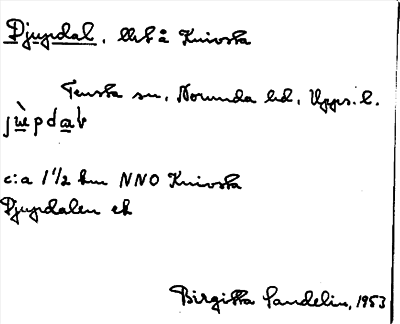 Djupdal,llrt å Knivsta
Tensta sn, Norunda hd, Upps. l.
c:a 1 1/2 km NNO Knivsta
Djupdalen ek
Birgitta Sandelin, 1953